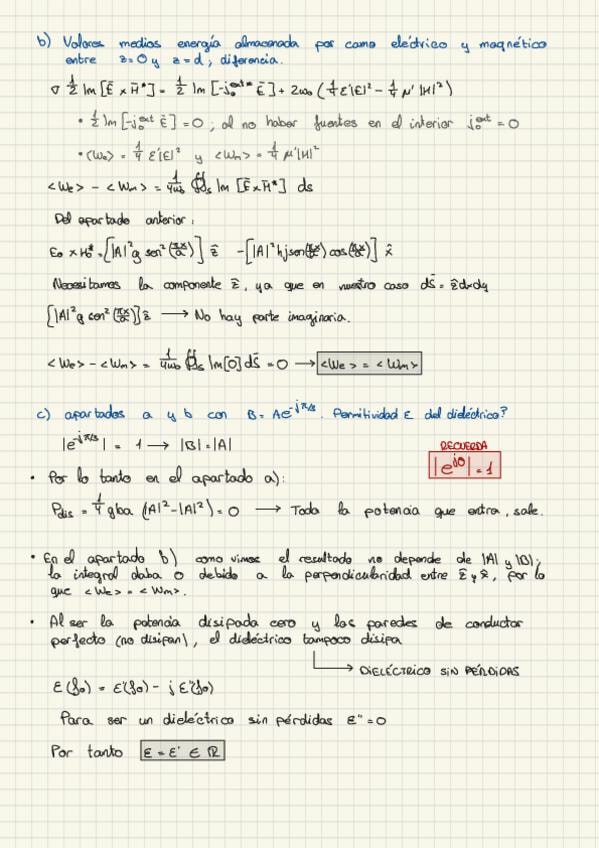 b) Valores medios energía almacenada por camo eléctrico y magnético
entre z=0 y z=d; diferencia.
∇ 1/2 Im[Ē x H̄*] = 1/2 Im[-j₀ᵉˣᵗ* Ē] + 2ω₀ (1/4 ε'|E|² - 1/4 μ'|H|²)
• 1/2 Im[-j₀ᵉˣᵗ Ē] = 0; al no haber fuentes en el interior j₀ᵉˣᵗ = 0
• <We> = 1/4 ε'|E|² y <Wm> = 1/4 μ'|H|²
<We> - <Wm> = 1/4ω₀ ∯s Im[Ē x H̄*] ds
Del apartado anterior:
E₀ x H₀* = [|A|² g sen²(πx/a)] ẑ - [|A|² h j sen(πx/a) cos(πx/a)] x̂
Necesitamos la componente ẑ, ya que en nuestro caso ds̄ = ẑ dx dy
[|A|² g sen²(πx/a)] ẑ → No hay parte imaginaria.
<We> - <Wm> = 1/4ω₀ ∯s Im[0] ds̄ = 0 → <We> = <Wm>
c) apartados a y b con B = Ae^-jπ/3. Permitividad ε del dieléctrico?
|e^-jπ/3| = 1 → |B| = |A|
RECUERDA
|e^jθ| = 1
• Por lo tanto en el apartado a):
Pdis = 1/4 gba (|A|² - |A|²) = 0 → Toda la potencia que entra, sale.
• En el apartado b) como vimos el resultado no depende de |A| y |B|;
la integral daba 0 debido a la perpendicularidad entre ẑ y x̂, por lo
que <We> = <Wm>.
• Al ser la potencia disipada cero y las paredes de conductor
perfecto (no disipan), el dieléctrico tampoco disipa
→ DIELÉCTRICO SIN PÉRDIDAS
ε(f₀) = ε'(f₀) - j ε''(f₀)
Para ser un dieléctrico sin pérdidas ε'' = 0
Por tanto ε = ε' ∈ ℝ